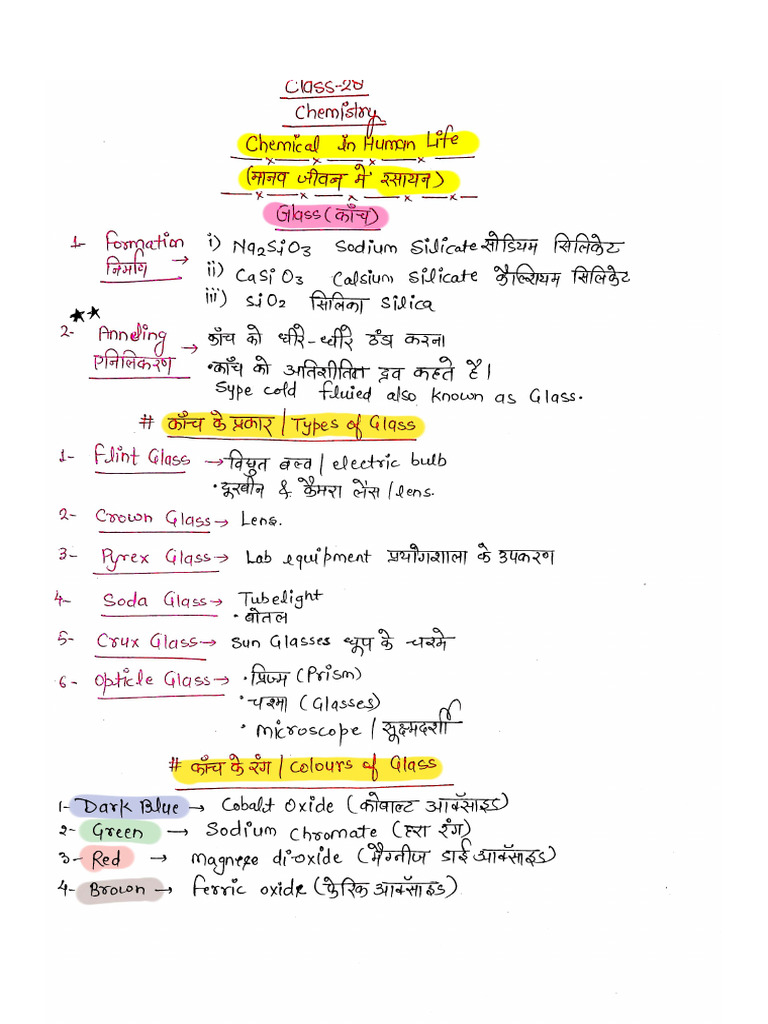 Class-28
Chemistry
Chemical in Human Life
(मानव जीवन में रसायन)
Glass (काँच)
1- Formation निर्माण → i) Na2SiO3 Sodium Silicate सोडियम सिलिकेट
ii) CaSiO3 Calsium Silicate कैल्शियम सिलिकेट
iii) SiO2 सिलिका Silica
2- Anneling एनिलिकरण → काँच को धीरे-धीरे ठंडा करना
• काँच को अतिशीतित द्रव कहते है।
Sype cold fluied also known as Glass.
# काँच के प्रकार / Types of Glass
1- Flint Glass → विद्युत बल्व / electric bulb
• दूरबीन & कैमरा लेंस / lens.
2- Crown Glass → Lens.
3- Pyrex Glass → Lab equipment प्रयोगशाला के उपकरण
4- Soda Glass → Tubelight
• बोतल
5- Crux Glass → Sun Glasses धूप के चश्मे
6- Opticle Glass → • प्रिज्म (Prism)
• चश्मा (Glasses)
• microscope / सूक्ष्मदर्शी
# काँच के रंग / Colours of Glass
1- Dark Blue → Cobalt Oxide (कोवाल्ट ऑक्साइड)
2- Green → Sodium Chromate (हरा रंग)
3- Red → Magneze di-oxide (मैग्नीज डाई ऑक्साइड)
4- Brown → ferric oxide (फेरिक ऑक्साइड)